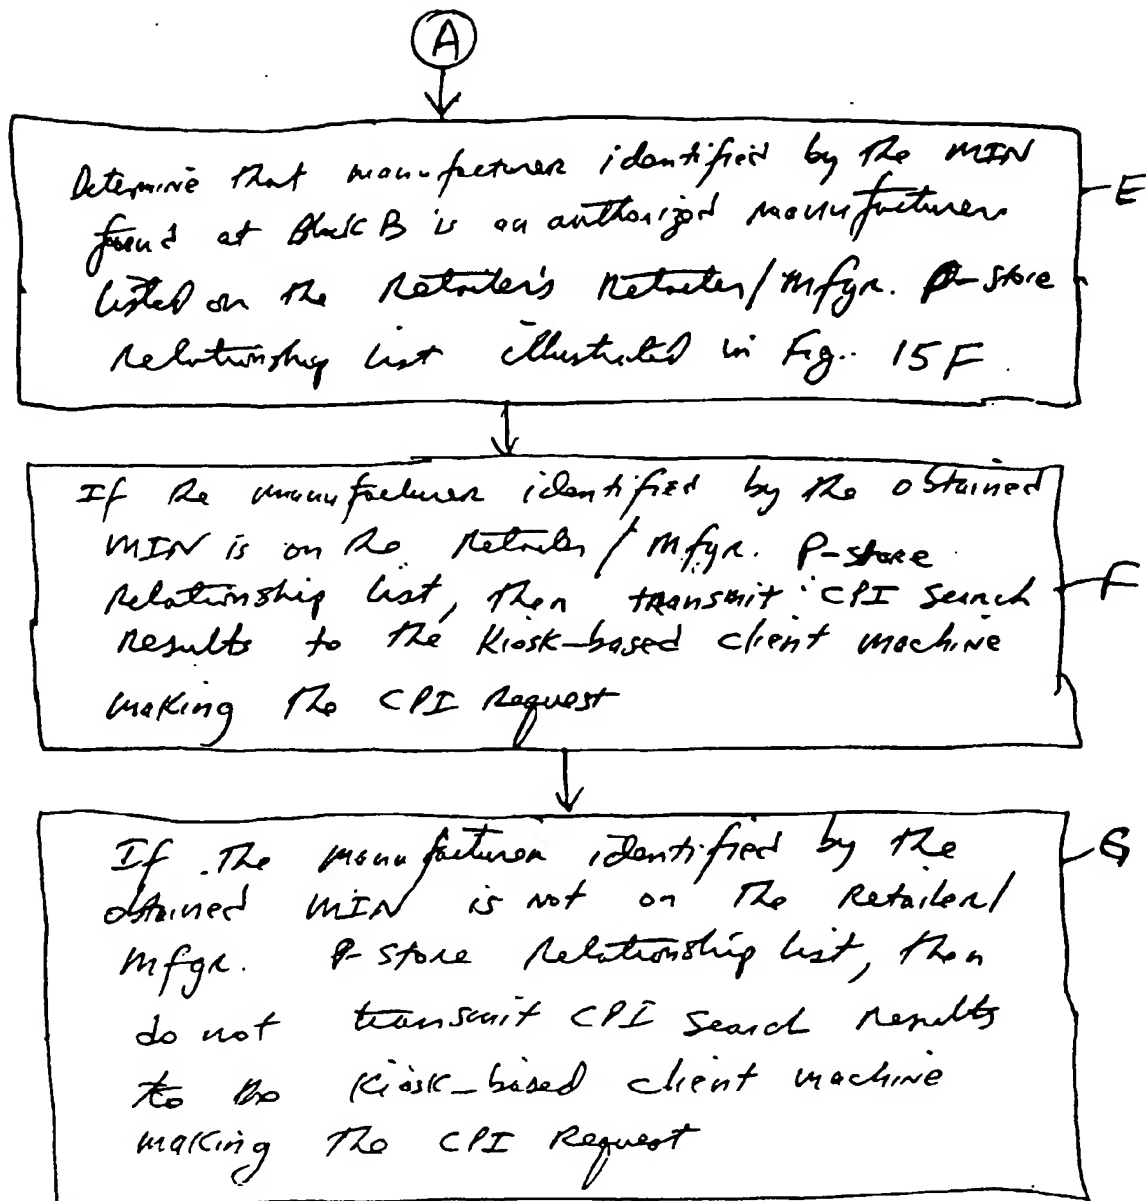 A
Determine that manufacturer identified by the MIN
found at Block B is an authorized manufacturer
listed on the Retailer's Retailer/Mfgr. P-store
Relationship list illustrated in Fig. 15F
E
If the manufacturer identified by the obtained
MIN is on the Retailer/Mfgr. P-store
Relationship list, then transmit CPI search
results to the Kiosk-based client machine
making the CPI Request
F
If the manufacturer identified by the
obtained MIN is not on the Retailer/
Mfgr. P-store Relationship list, then
do not transmit CPI search results
to the Kiosk-based client machine
making the CPI Request
G